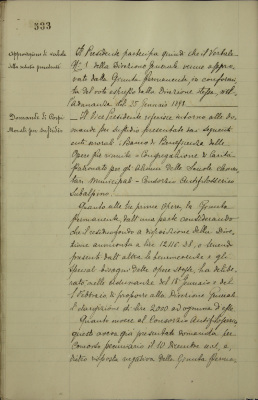 333
Approvazione di verbale
della seduta precedente
Il Presidente partecipa quindi che il Verbale
N° 1 della Direzione Generale venne appro-
vato dalla Giunta Permanente, in conformi-
tà del voto espresso dalla Direzione stessa, nel
l'adunanza del 25 Gennaio 1898.
Domande di Corpi
Morali per sussidio
Il Vice Presidente riferisce intorno alle do-
mande per sussidio presentate dai seguenti
enti morali: Banco di Beneficenza delle
Opere pie riunite - Congregazione di Carità
Patronato per gli alunni delle Scuole
Municipali - Consorzio Antifilosserico
Subalpino.
Quanto alle tre prime Opere, la Giunta
permanente, dall'una parte considerando
che il fondo a disposizione della Dire-
zione ammonta a lire 12115.38, e tenendo
presenti dall'altra le benemerenze e gli
speciali bisogni delle opere stesse, ha delibe-
rato nelle adunanze del 18 Gennaio e del
1 Febbraio di proporre alla Direzione Generale
l'elargizione di lire 2000 ad ognuna d'esse.
Quanto invece al Consorzio Antifilosserico,
questo aveva già presentata domanda per
Concorso pecuniario il 10 Dicembre
dietro risposta negativa della Giunta Perma-